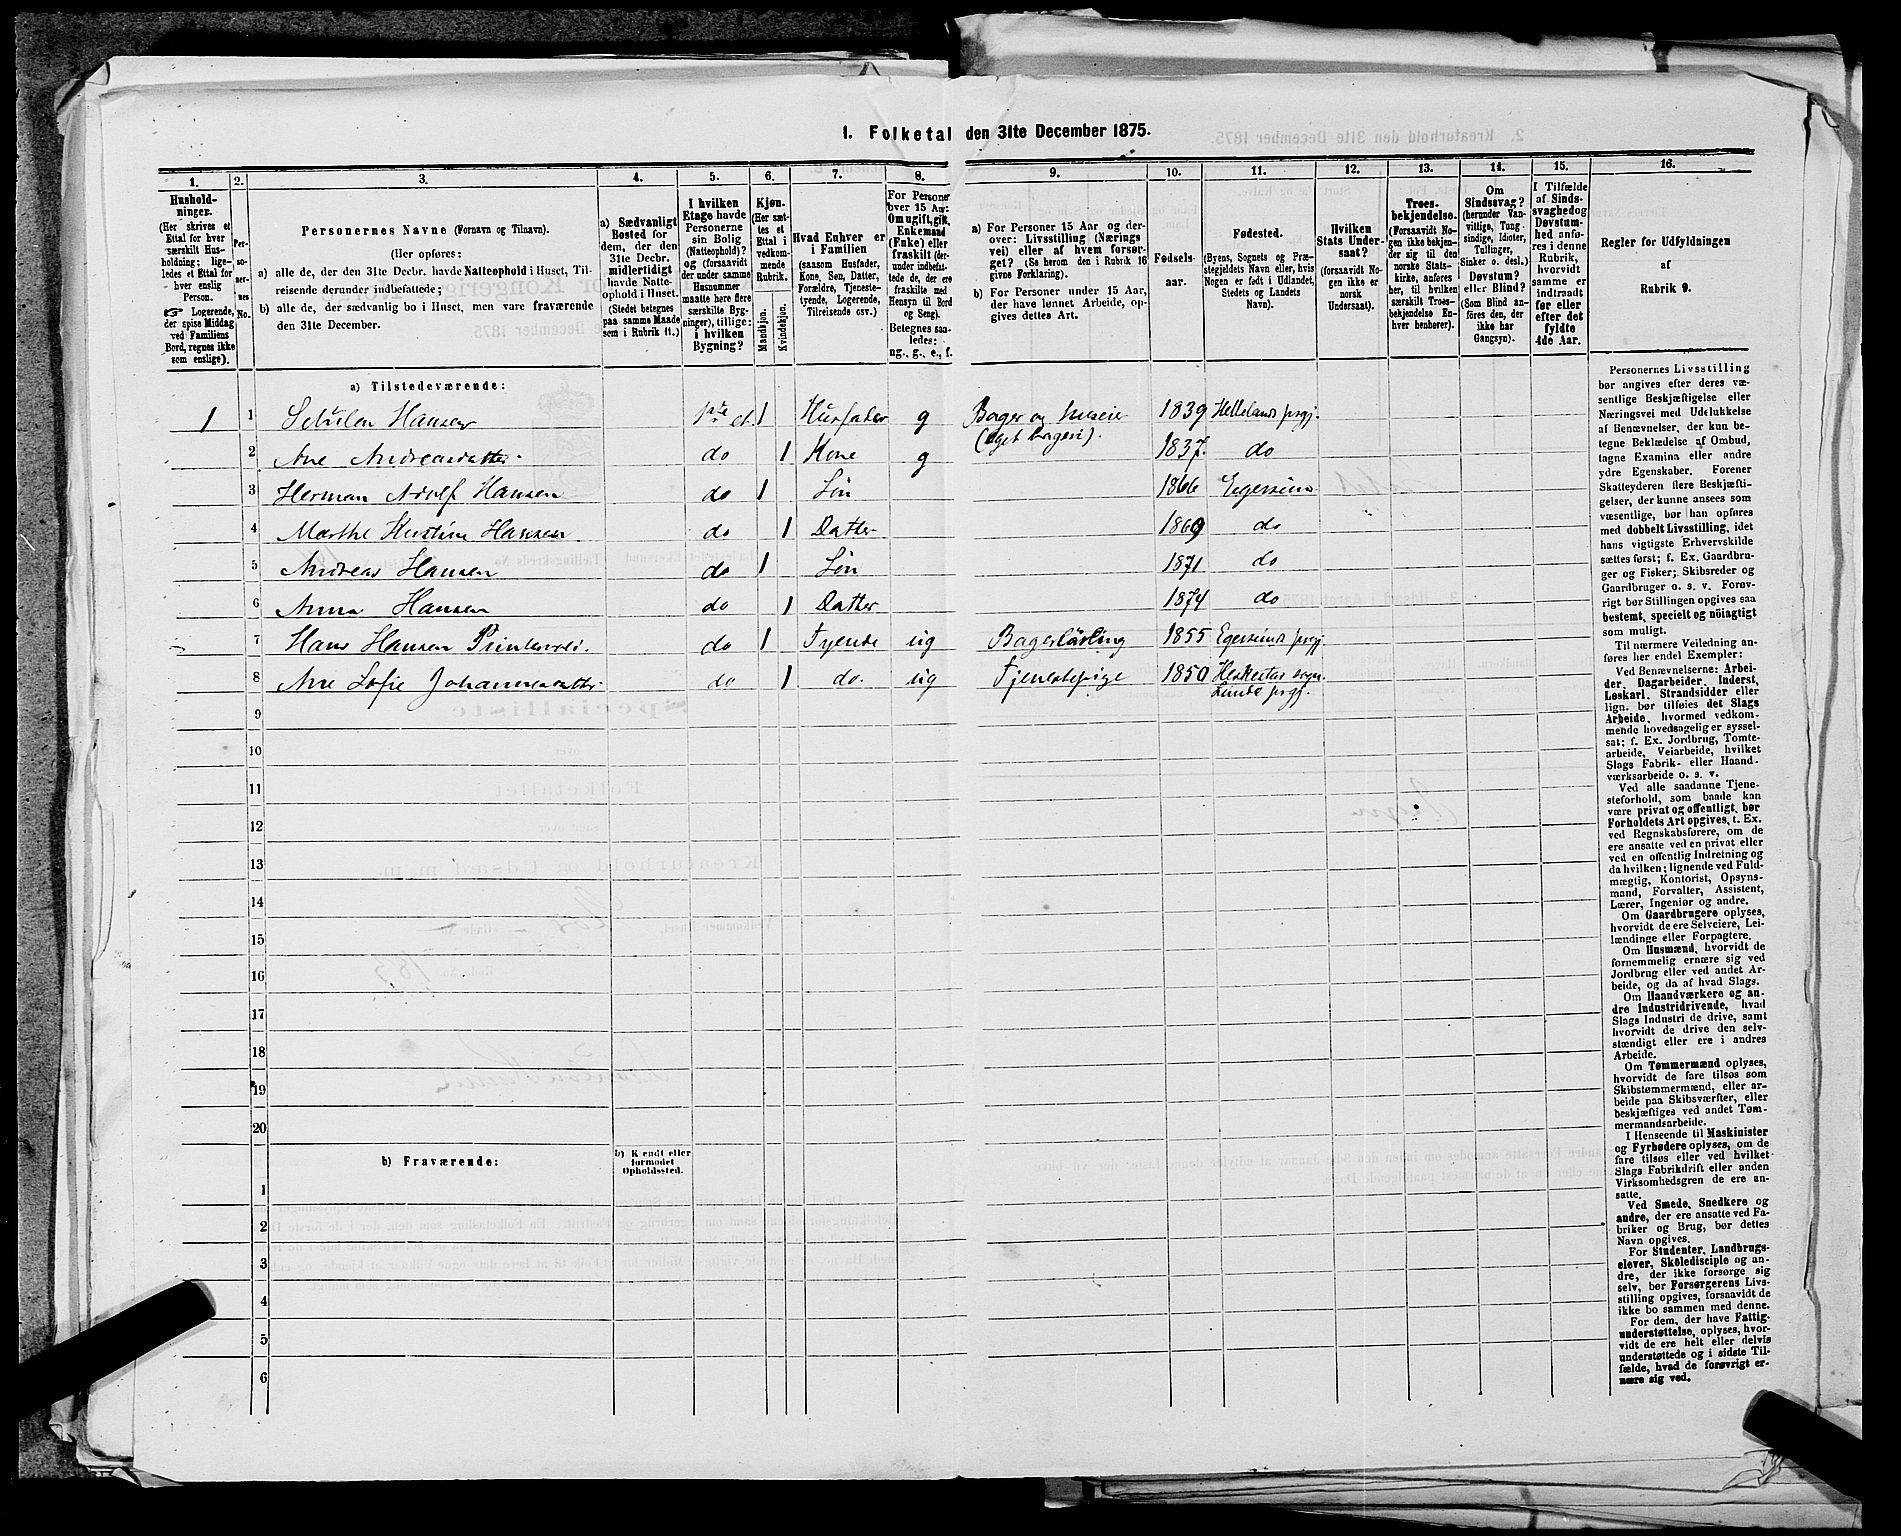 1. Folketal den 31te December 1875.
1.
Hushold-
ninger.
(Her skrives et
Ettal for hver
særskilt Hus-
holdning; lige-
ledes et Ettal for
hver enslig
Person.
Logerende,
der spise Middag
ved Familiens
Bord, regnes ikke
som enslige).
2.
Per-
so-
ner-
nes
No.
3.
Personernes Navne (Fornavn og Tilnavn).
(Her opføres:
a) alle de, der den 31te Decbr. havde Natteophold i Huset, Til-
reisende derunder indbefattede;
b) alle de, der sædvanlig bo i Huset, men vare fraværende
den 31te December.
4.
a) Sædvanligt
Bosted for
dem, der den
31te Decbr.
midlertidigt
havde Natte-
ophold i Huset.
(Stedet betegnes
paa samme Maade
som i Rubrik 11.)
5.
I hvilken
Etage havde
Personerne
sin Bolig
(Natteophold)?
og (forsaavidt
der under samme
Husnummer
maatte høre flere
særskilte Byg-
ninger), tillige:
i hvilken
Bygning?
6.
Kjøn.
(Her sæt-
tes et
Ettal i
vedkom-
mende
Rubrik.
Mandkjøn.
Kvindekjøn.
7.
Hvad Enhver er
i Familien
(saasom Husfader,
Kone, Søn, Datter,
Forældre, Tjeneste-
tyende, Logerende,
Tilreisende csv.)
8.
For Personer
over 15 Aar:
Om ugift, gift,
Enkemand
(Enke) eller
fraskilt (der-
under indbefat-
tede de, der ere
fraskilte med
Hensyn til Bord
og Seng).
Betegnes saa-
ledes:
ug., g., e., f.
9.
a) For Personer 15 Aar og der-
over: Livsstilling (Nærings-
vei) eller af hvem forsør-
get? (Se herom den i Rubrik 16
givne Forklaring).
b) For Personer under 15 Aar,
der have lønnet Arbeide, op-
gives dettes Art.
10.
Fødsels-
aar.
11.
Fødested.
(Byens, Sognets og Præ-
stegjeldets Navn eller, hvis
Nogen er født i Udlandet,
Stedets og Landets
Navn).
12.
Hvilken
Stats Under-
saat?
(forsaavidt No-
gen ikke er
norsk
Undersaat).
13.
Troes-
bekjendelse.
(Forsaavidt No-
gen ikke bekjen-
der sig til den
norske Stats-
kirke, anføres
her, til hvilken
særskilt Troes-
bekjendelse En-
hver henhører).
14.
Om
Sindssvag?
(herunder Van-
vittige, Tung-
sindige, Idioter,
Tullinger,
Sinker o. desl.)
Døvstum?
eller Blind?
(Som Blind an-
føres den, der
ikke har
Gangsyn).
15.
I Tilfælde
af Sinds-
svaghed og
Døvstum-
hed anfø-
res i denne
Rubrik,
hvorvidt
samme er
indtraadt
før eller
efter det
fyldte
4de Aar.
16.
Regler for Udfyldningen
af
Rubrik 9.
a) Tilstedeværende:
1 1 Hansen 1ste et. 1 Husfader g Bager og 1839 Hellelands prgj.
(eget bageri).
2 Ane Andreasdatter do 1 Kone g 1837. do
3 Herman Adolf Hansen do 1 Søn 1866 Egersund
4 Marthe Kirstine Hansen do 1 Datter 1869 do
5 Andreas Hansen do 1 Søn 1871 do
6 Anna Hansen do 1 Datter 1874 do
7 Hans Hansen do 1 Tyende ug Bagerlärling 1855 Egersunds prgj.
8 Ane Sofie Johannesdatter do 1 do. ug Tjenestepige 1850 Heskestad sogn
Lunde prgj.
9
10
11
12
13
14
15
16
17
18
19
20
b) Fraværende:
b) Kendt eller
formodet
Opholdssted.
1
2
3
4
5
6
Personernes Livsstilling
bør angives efter deres væ-
sentlige Beskjæftigelse eller
Næringsvei med Udelukkelse
af Benævnelser, der kun be-
tegne Beklædelse af Ombud,
tagne Examina eller andre
ydre Egenskaber. Forener
Skatteyderen flere Beskjæfti-
gelser, der kunne ansees som
væsentlige, bør han opføres
med dobbelt Livsstilling, idet
hans vigtigste Erhvervskilde
sættes først; f. Ex. Gaardbru-
ger og Fisker; Skibsreder og
Gaardbruger o. s. v. Forøv-
rigt bør Stillingen opgives saa
bestemt, specielt og nöiagtigt
som muligt.
Til nærmere Veiledning an-
føres her endel Exempler:
Ved Benævnelserne: Arbei-
der, Dagarbeider, Inderst,
Løskarl, Strandsidder eller
lign. bør tilføies det Slags
Arbeide, hvormed vedkom-
mende hovedsagelig er syssel-
sat; f. Ex. Jordbrug, Tomte-
arbeide, Veiarbeide, hvilket
Slags Fabrik- eller Haand-
værksarbeide o. s. v.
Ved alle saadanne Tjene-
steforhold, som baade kan
være privat og offentligt, bør
Forholdets Art opgives, t. Ex.
ved Regnskabsførere, om de
ere ansatte ved en privat eller
ved en offentlig Indretning og
da hvilken; lignende ved Fuld-
mægtig, Kontorist, Opsyns-
mand, Forvalter, Assistent,
Lærer, Ingeniør og andre.
Om Gaardbrugere oplyses,
hvorvidt de ere Selveiere, Lei-
lændinge eller Forpagtere.
Om Husmænd, hvorvidt de
fornemmelig ernære sig ved
Jordbrug eller ved andet Ar-
beide, og da af hvad Slags.
Om Haandværkere og an-
dre Industridrivende, hvad
Slags Industri de drive, samt
hvorvidt de drive den selv-
stændigt eller ere i andres
Arbeide.
Om Tømmermænd oplyses,
hvorvidt de fare tilsøs som
Skibstømmermænd, eller ar-
beide paa Skibsværfter, eller
beskjæftiges ved andet Tøm-
mermandsarbeide.
I Henseende til Maskinister
og Fyrbødere oplyses, om de
fare tilsøs eller ved hvilket
Slags Fabrikdrift eller anden
Virksomhedsgren de ere an-
satte.
Ved Smede, Snedkere og
andre, der ere ansatte ved Fa-
briker og Brug, bør dettes
Navn opgives.
For Studenter, Landbrugs-
elever, Skoledisciple og an-
dre, der ikke forsørge sig
selv, bør Forsørgerens Livs-
stilling opgives, forsaavidt de
ikke bo sammen med denne.
For dem, der have Fattig-
understøttelse, oplyses, hvor-
vidt de ere helt eller delvis
understøttede og i sidste Til-
fælde, hvad de forøvrigt er-
nære sig ved.